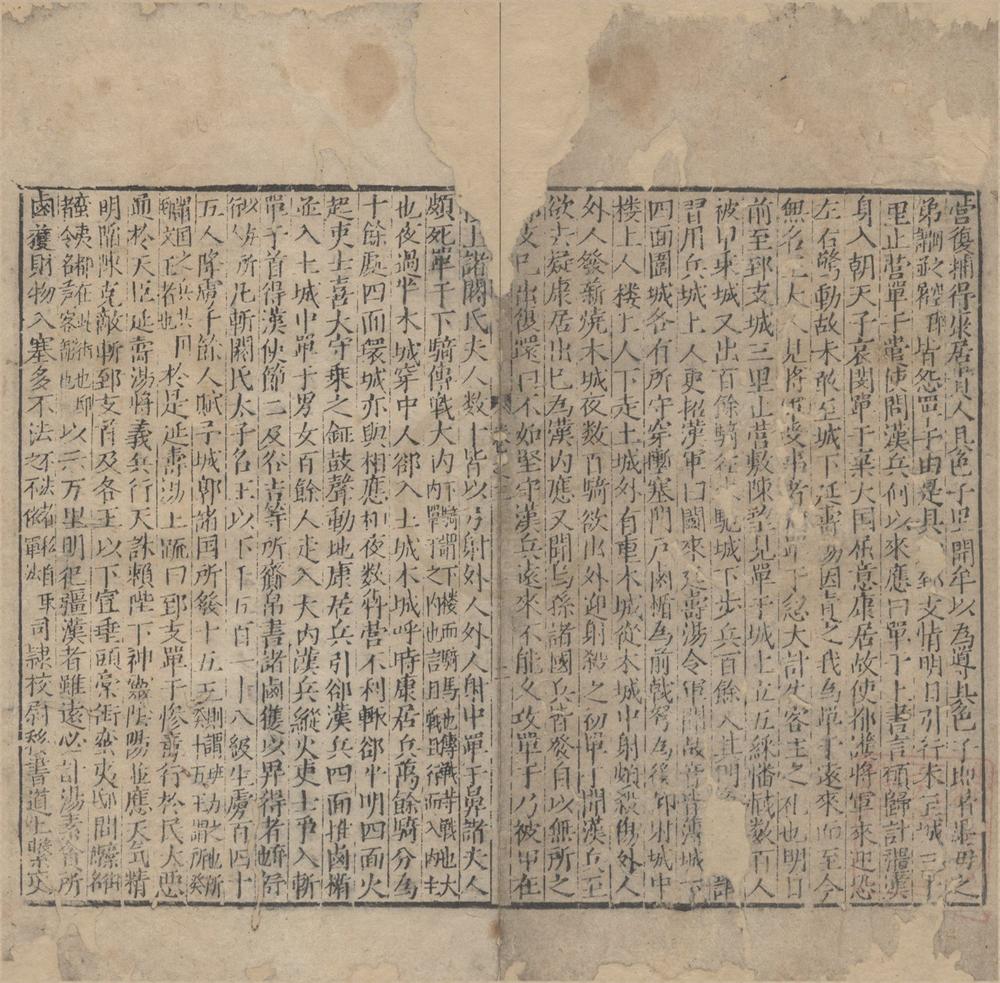 營復捕得康居貴人具色子男開牟以為導具色子即屠墨母之
弟皆怨單于由是具郅支情明日引行未至城三十
里止營單于遣使問漢兵何以來應曰單于上書言願歸計彊漢
身入朝天子哀閔單于棄大国屈意康居故使都護將軍來迎恐
左右驚動故未敢至城下延壽湯因責之我為單于遠來而至今
無名王大人見將軍受事者單于忽大計失客主之礼也明日
前至郅支城三里止營敷陳望見單于城上立五綵幡幟数百人
被甲乘城又出百餘騎往來馳城下步兵百餘人夾門詳
習用兵城上人更招漢軍曰鬭來延壽湯令軍聞鼓音皆薄城下
四面圍城各有所守穿塹塞門戶鹵楯為前戟弩為後卬射城中
楼上人楼上人下走土城外有重木城從木城中射頗殺傷外人
外人發薪燒木城夜数百騎欲出外迎射殺之初單于聞漢兵至
欲去疑康居出已為漢内應又聞烏孫諸國兵皆發自以無所之
支已出復還曰不如堅守漢兵遠來不能久攻單于乃被甲在
上諸閼氏夫人数十皆以弓射外人外人射中單于鼻諸夫人
頗死單于下騎傳戰大内下騎謂下楼而騎馬也傳戰轉戰也大内單于之内也言且戰且行而入内
也夜過半木城穿中人卻入土城木城呼時康居兵萬餘騎分為
十餘處四面環城亦與相應和夜数犇營不利輒卻平明四面火
起吏士喜大守乘之鉦鼓聲動地康居兵引卻漢兵四面推鹵楯
並入土城中單于男女百餘人走入大内漢兵縱火吏士爭入斬
單于首得漢使節二及谷吉等所齎帛書諸鹵獲以畀得者
所凡斬閼氏太子名王以下千五百一十八級生虜百四十
五人降虜千餘人賦予城郭諸国所發十五王
於是延壽湯上疏曰郅支單于慘毒行於民大惡
通於天臣延壽湯將義兵行天誅賴陛下神靈陰陽並應天氣精
明陷陳克敵斬郅支首及名王以下宜垂頭槀街蠻夷邸間
以示万里明犯彊漢者雖遠必誅湯素貪所
鹵獲財物入塞多不法司隸校尉移書道上繫吏